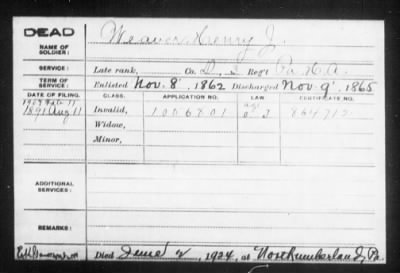 DEAD
NAME OF SOLDIER: Weaver, Henry J.
SERVICE: Late rank, Co. D, 3 Reg't Pa. H.A.
TERM OF SERVICE: Enlisted Nov. 8, 1862 Discharged Nov. 9, 1865
DATE OF FILING. CLASS. APPLICATION NO. LAW. CERTIFICATE NO.
1907 Feb 11
1891 Aug 11 Invalid, 1056701 864712
Widow,
Minor,
ADDITIONAL SERVICES:
REMARKS:
Died June 2, 1924, at Northumberland, Pa.